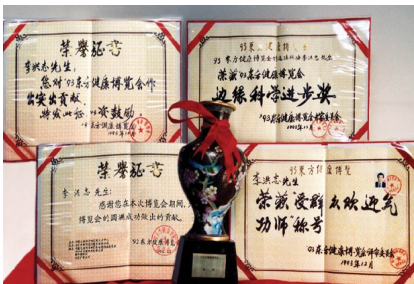 荣誉证书
李洪志先生:
您对'93东方健康博览会作
出突出贡献,
特发此证,以资鼓励
'93东方健康博览会
1993年12月
93东方健康博览会
李洪志先生
荣获'93东方健康博览会
边缘科学进步奖
'93东方健康博览会评审委员会
1993年12月
荣誉证书
李洪志先生:
感谢您在本次博览会期间,为
博览会的圆满成功做出的贡献。
'93东方健康博览会
93东方健康博览
李洪志先生
荣获"受群众欢迎气
功师"称号
'93东方健康博览会评审委员会
1993年12月